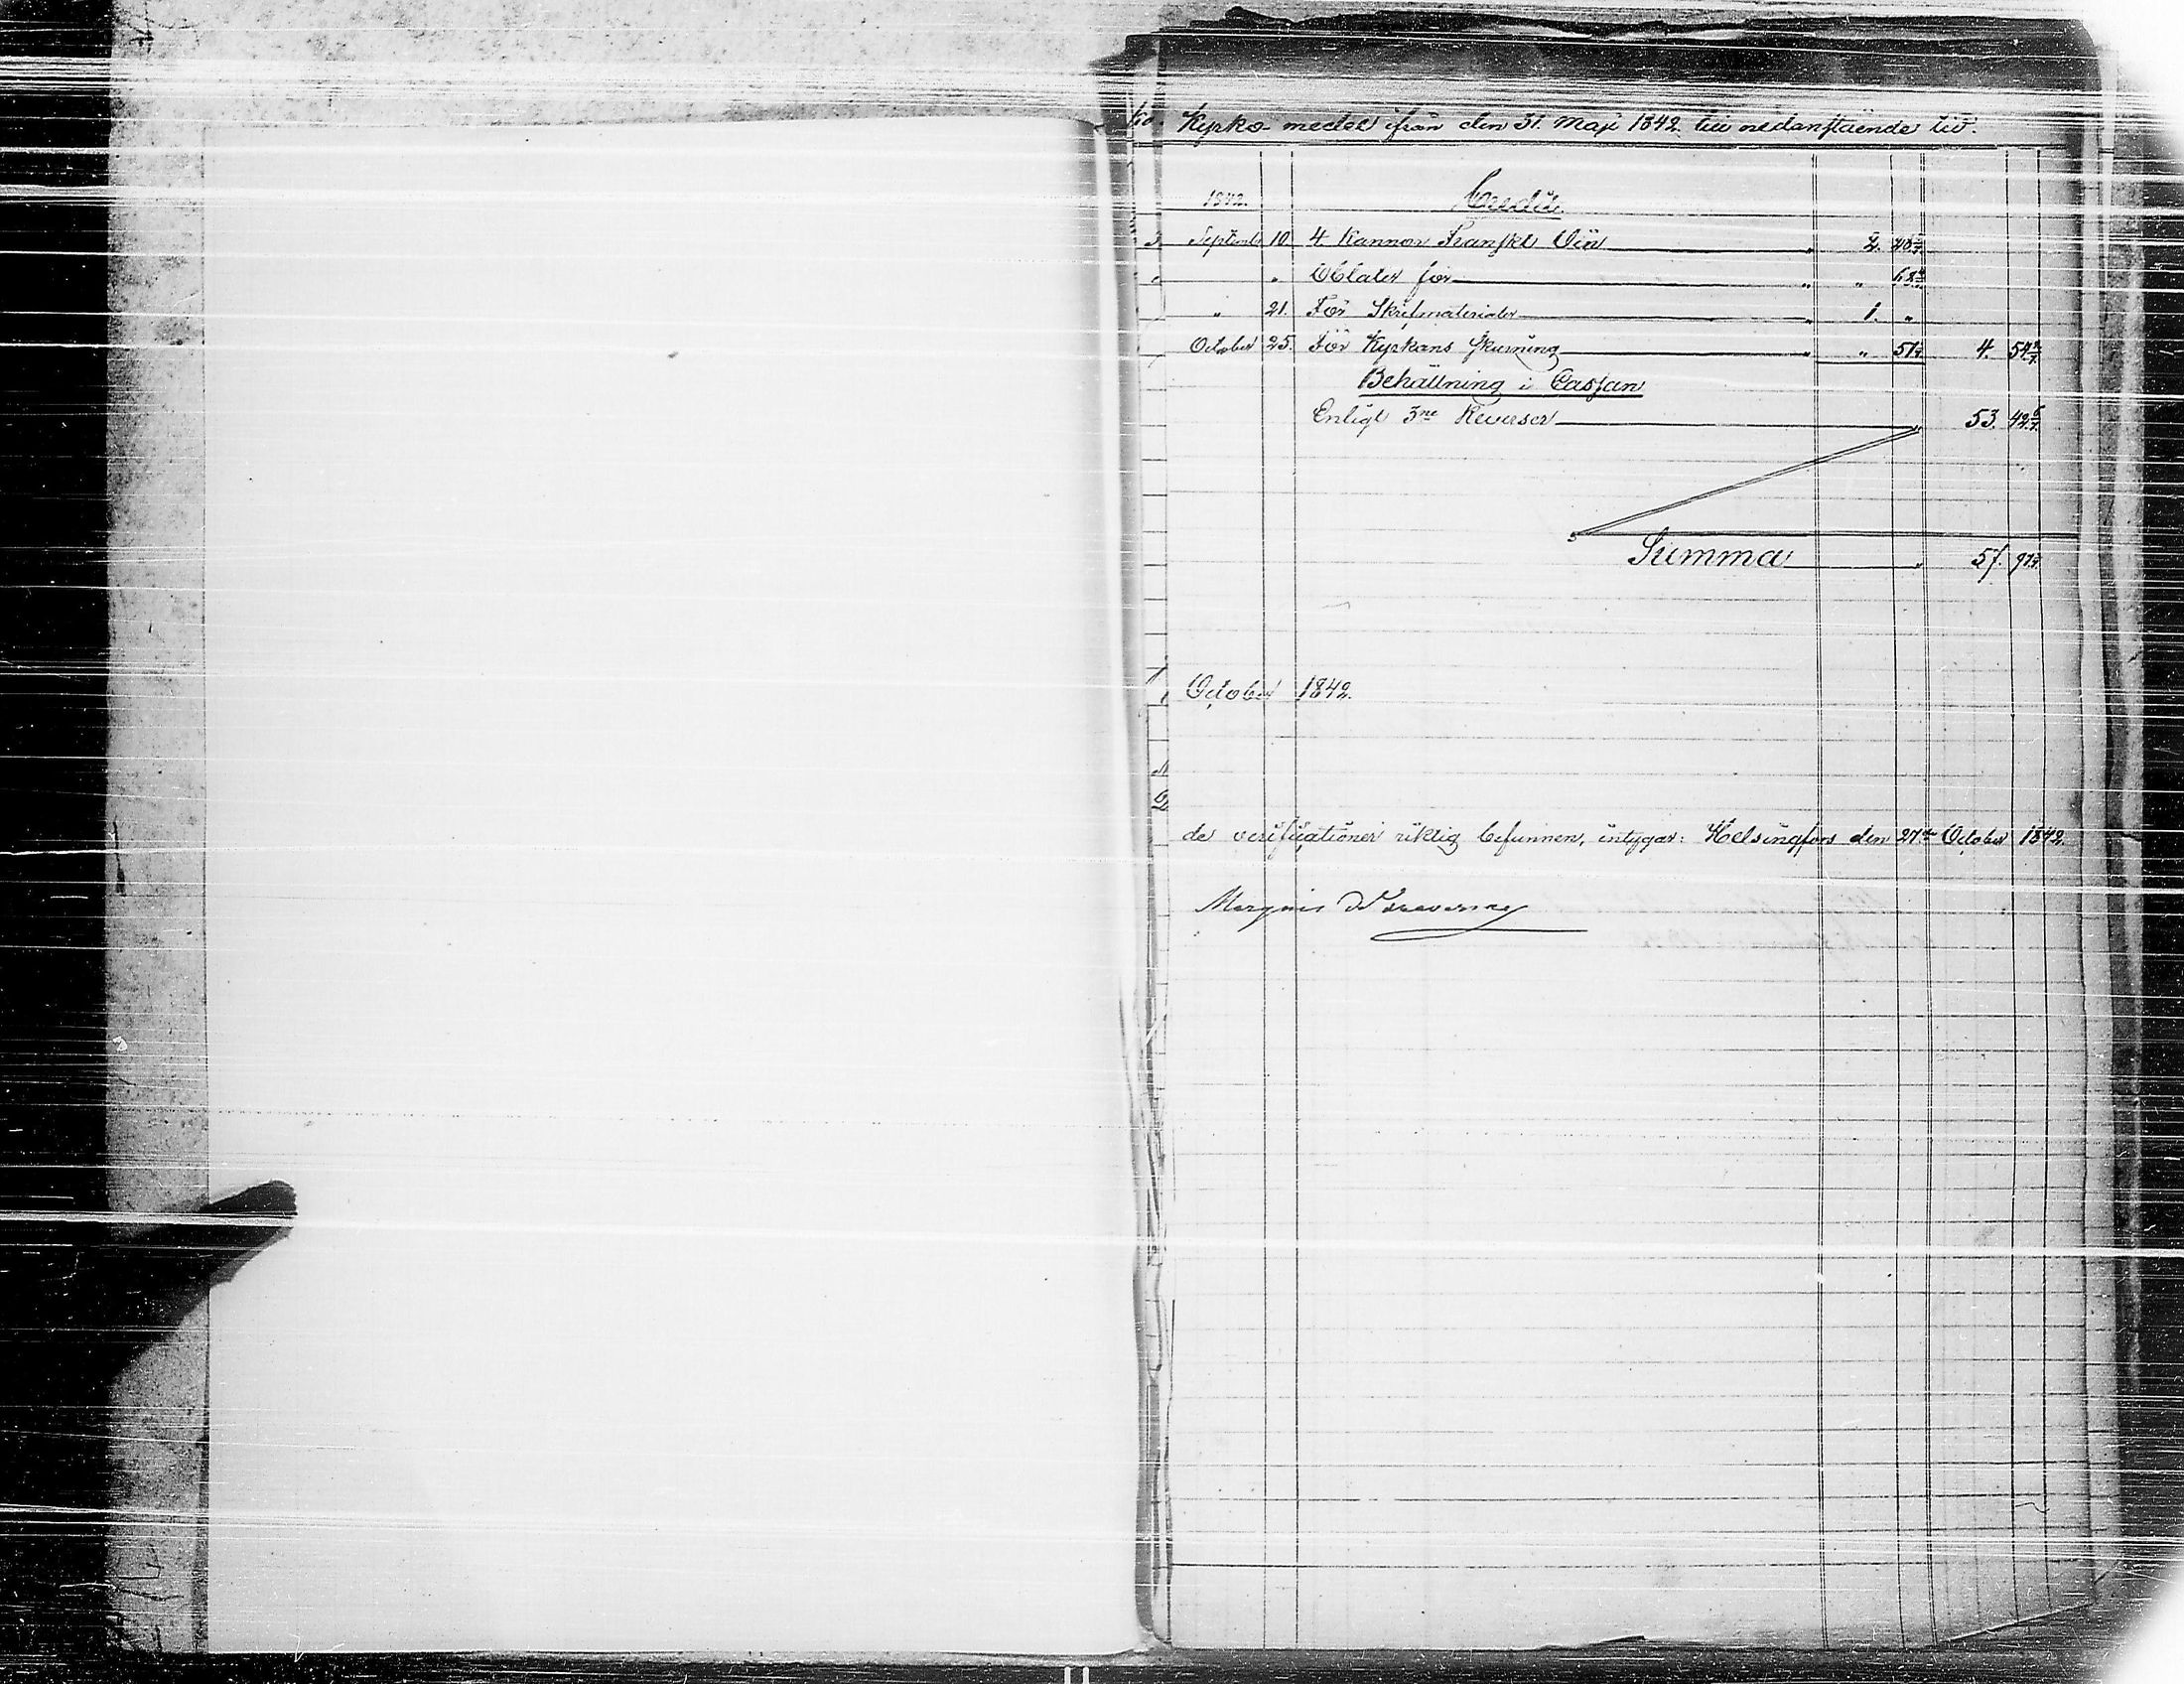 Kyrko-medel ifrån den 31. Maji 1842. till nedanstående tid.
1842. Credit.
September 10. 4 Kannor Franskt Vin " 2. 285/7
" " Oblater för " " 684/7
" 21. För Skrifmaterialer " 1. "
October 25. För Kyrkans skurning " " 4. 542/7
Behållning i Cassan
Enligt 3ne Reverser " 53. 426/7
Summa " 57. 971/7
October 1842.
de verificationer riktig befunnen, intygar: Helsingfors den 27de October 1842.
Marquis